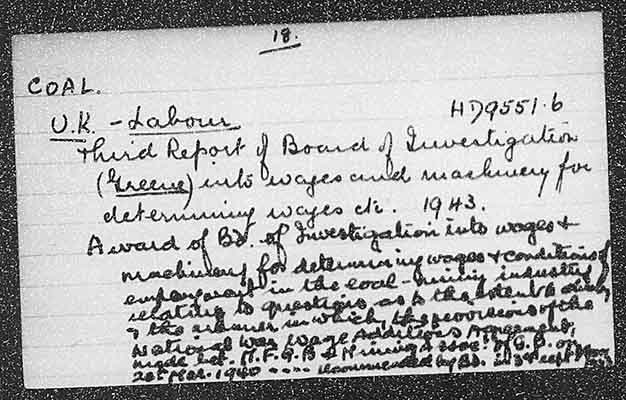 18.
COAL.
U.K. - Labour HD9551.6
Third Report of Board of Investigation
(Greene) into wages and machinery for
determining wages etc. 1943.
Award of Bd. of Investigation into wages +
machinery for determining wages + conditions of
employment in the coal-mining industry
relating to questions as to the extent to which
+ the manner in which the provisions of the
National War Wage Additions Agreement,
made bet. M.F.G.B + Mining Assoc. of G.B. on
20th Mar. 1940 .... recommended by Bd. in 3rd rept